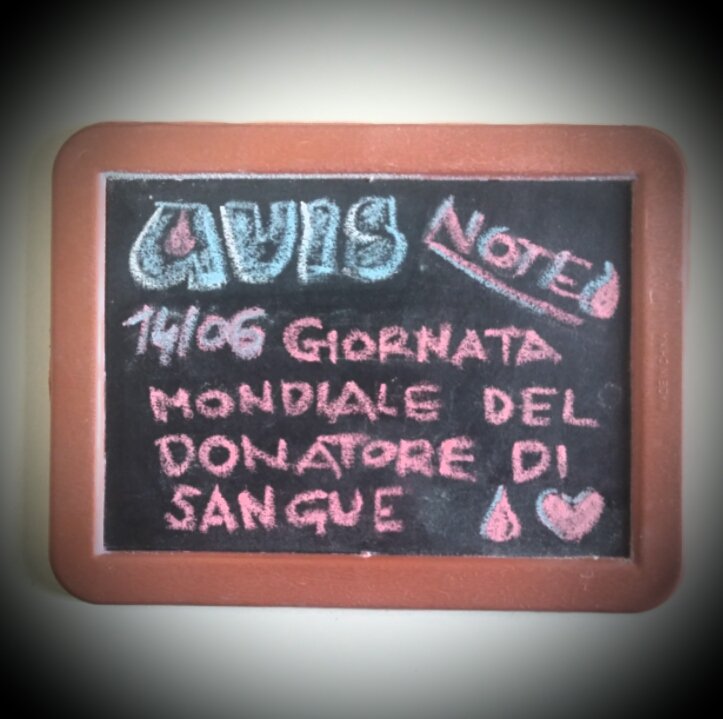 AVIS NOTE
14/06 GIORNATA
MONDIALE DEL
DONATORE DI
SANGUE